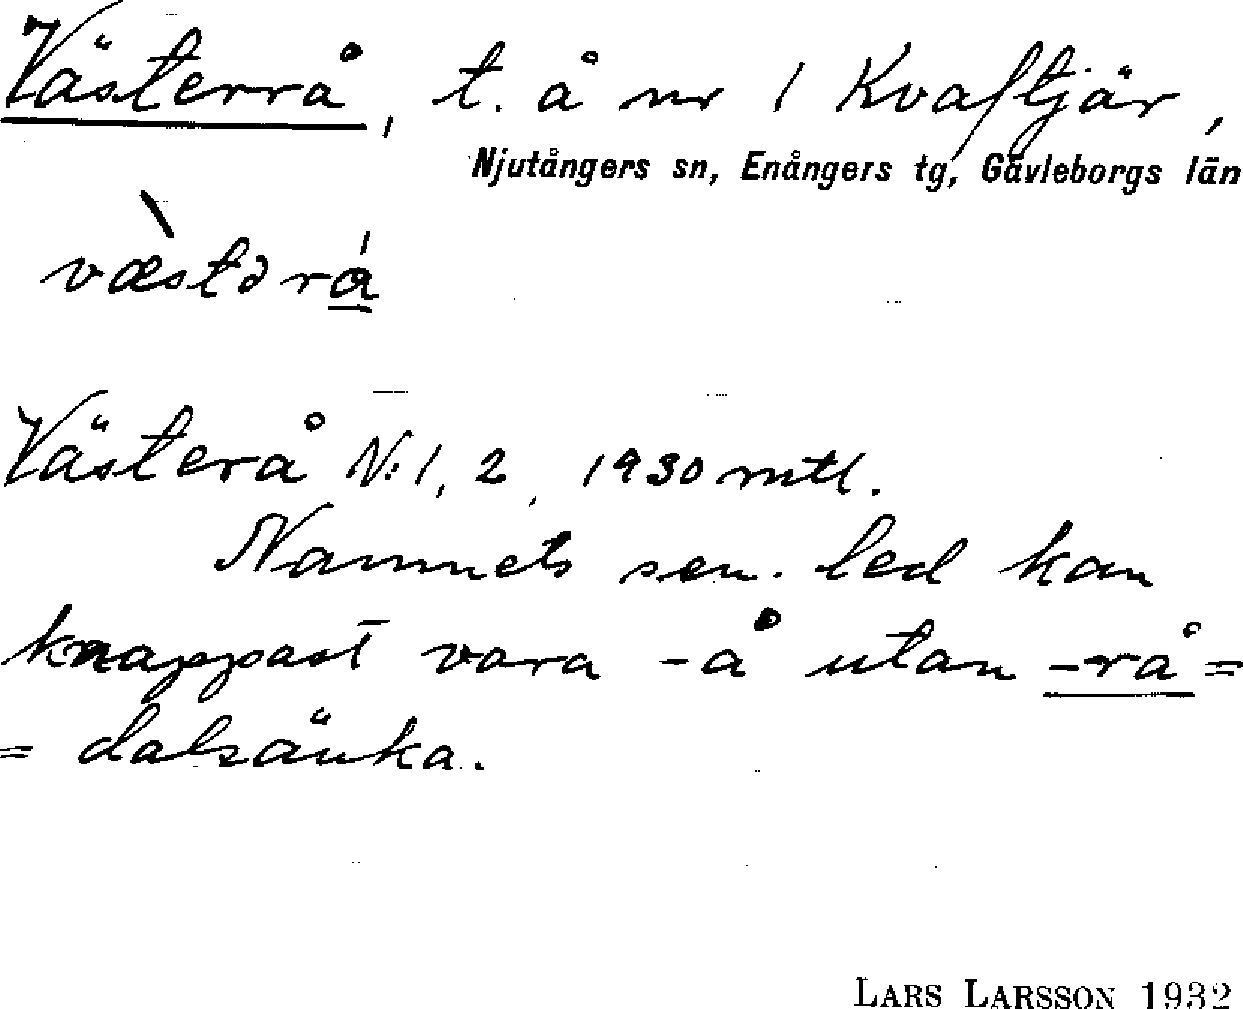 Västerrå, t. å nr 1 Kvaftjär,
Njutångers sn, Enångers tg, Gävleborgs län
væ̀stərá
Västerå N:1, 2, 1930 mtl.
Namnets sen. led kan
knappast vara -å utan -rå =
= dalsänka.
LARS LARSSON 1932